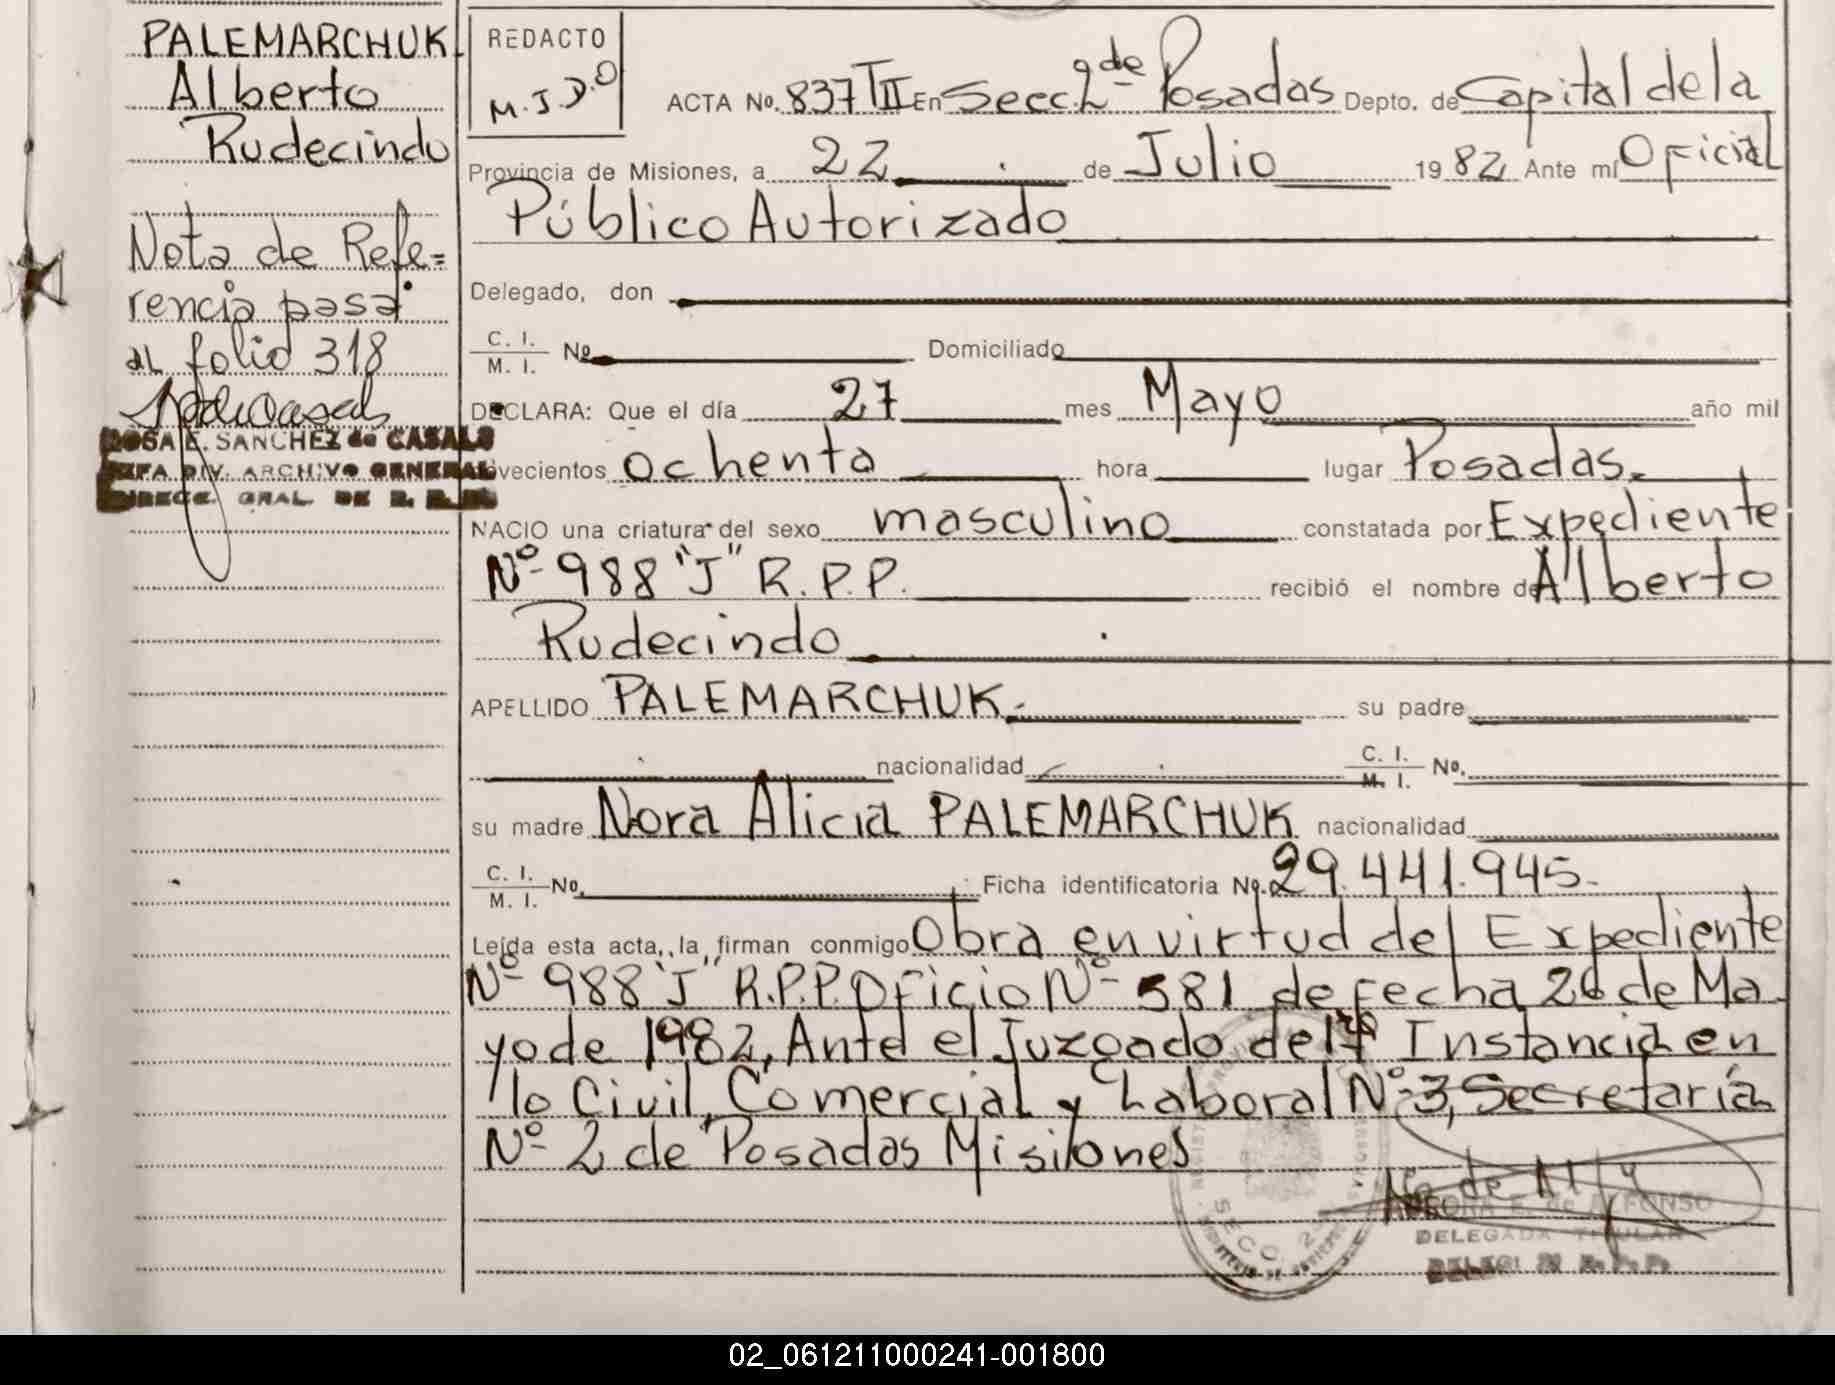 PALEMARCHUK
Alberto
Rudecindo
Nota de Refe=
rencia pasa
al folio 318
ROSA E. SANCHEZ de CASALS
JEFA DIV. ARCHIVO GENERAL
DIRECC. GRAL. DE R. P. P.
REDACTO
M.J.D.O
ACTA No. 837 TII En Secc. 2da de Posadas Depto. de Capital de la
Provincia de Misiones, a 22 de Julio 1982 Ante mí Oficial
Público Autorizado
Delegado, don
C. I.
M. I. No Domiciliado
DECLARA: Que el día 27 mes Mayo año mil
novecientos ochenta hora lugar Posadas.
NACIO una criatura del sexo masculino constatada por Expediente
Nº 988 "J" R.P.P. recibió el nombre de Alberto
Rudecindo
APELLIDO PALEMARCHUK.- su padre
nacionalidad C. I.
M. I. No.
su madre Nora Alicia PALEMARCHUK nacionalidad
C. I.
M. I. No. Ficha identificatoria No. 29.441.945.-
Leída esta acta, la firman conmigo Obra en virtud del Expediente
Nº 988 "J" R.P.P. Oficio Nº 581 de fecha 26 de Ma
yo de 1982, Ante el Juzgado de 1ª Instancia en
lo Civil, Comercial y Laboral Nº 3, Secretaría
Nº 2 de Posadas Misiones
SECC. 2
de ALFONSO
DELEGADA TITULAR
02_061211000241-001800